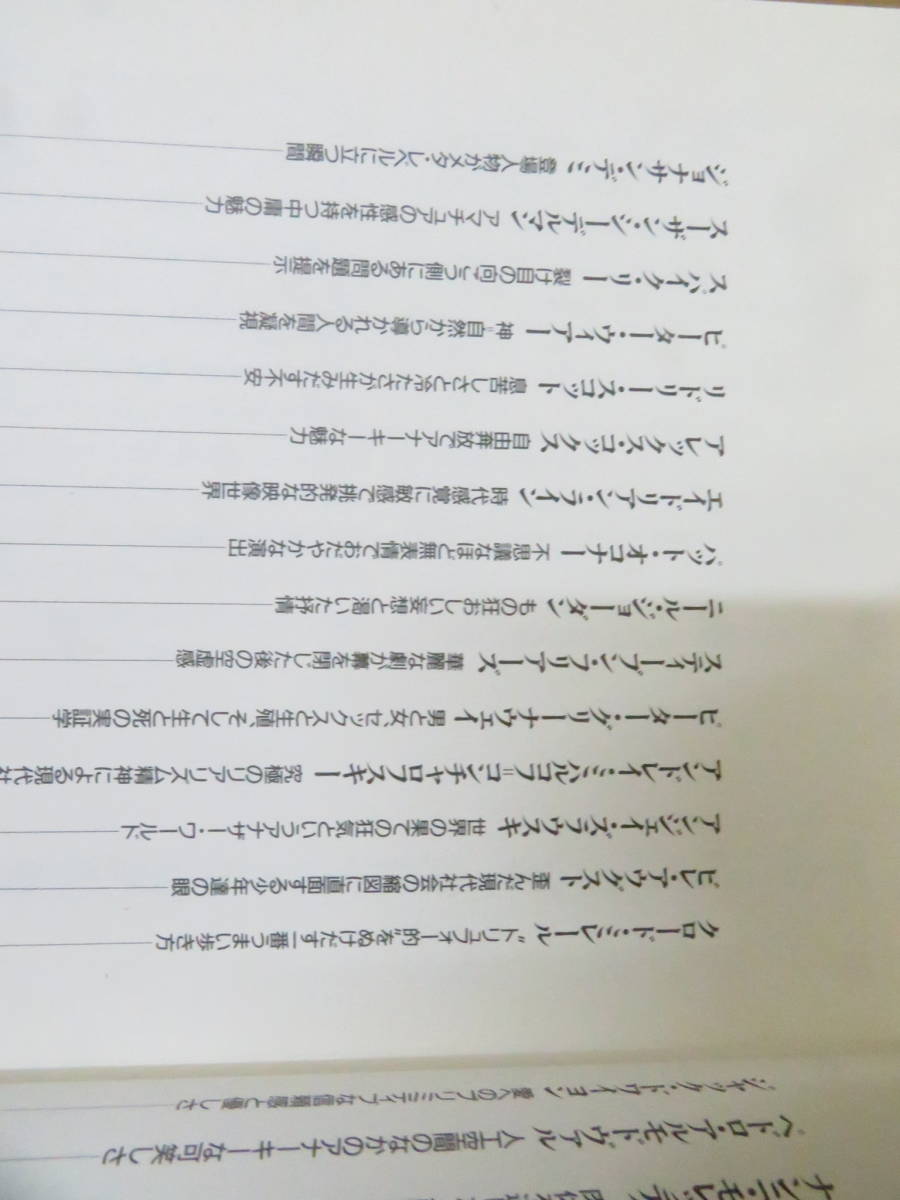 ペドロ・アルモドヴァル 人工空間のなかのアナーキーな可笑しさ
ジャック・ドワイヨン 愛へのプリミティブな信頼感と優しさ
クロード・ミレール “トリュフォー的”をぬけだす一番うまい歩き方
ビレ・アウグスト 歪んだ現代社会の縮図に直面する少年達の眼
アンジェイ・ズラウスキ 世界の果ての狂気というアナザー・ワールド
アンドレイ・ミハルコフ=コンチャロフスキー 究極のリアリズム精神による現代社
ピーター・グリーナウェイ 男と女、セックスと生殖、そして生と死の実証学
スティーブン・フリアーズ 華麗な劇が幕を閉じた後の空虚感
ニール・ジョーダン もの狂おしい妄想と渇いた抒情
パット・オコナー 不思議なほど無表情でおだやかな演出
エイドリアン・ライン 時代感覚に敏感で挑発的な映像世界
アレックス・コックス 自由奔放でアナーキーな魅力
リドリー・スコット 息苦しさと冷たさが生みだす不安
ピーター・ウィアー 神=自然から導かれる人間を凝視
スパイク・リー 裂け目の向こう側にある問題を提示
スーザン・シーデルマン アマチュアの感性を持つ中庸の魅力
ジョナサン・デミ 登場人物がメタ・レベルに立つ瞬間